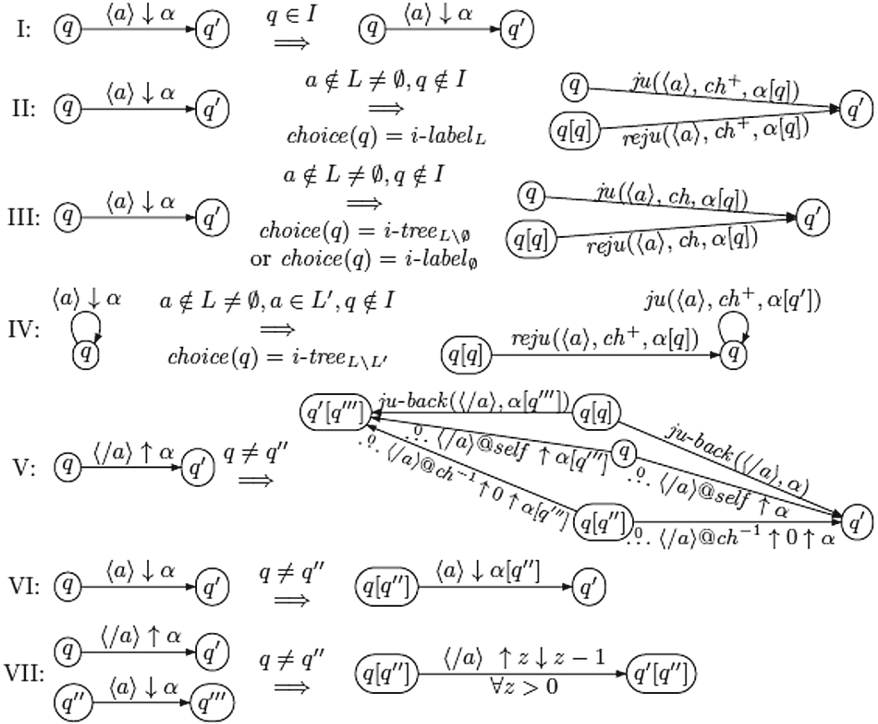 I: q ⟨a⟩ ↓ α q′ q ∈ I ⟹ q ⟨a⟩ ↓ α q′
II: q ⟨a⟩ ↓ α q′ a ∉ L ≠ ∅, q ∉ I ⟹ choice(q) = i-label_L
q ju(⟨a⟩, ch⁺, α[q]) q′
q[q] reju(⟨a⟩, ch⁺, α[q])
III: q ⟨a⟩ ↓ α q′ a ∉ L ≠ ∅, q ∉ I ⟹ choice(q) = i-tree_{L\∅}
or choice(q) = i-label_∅
q ju(⟨a⟩, ch, α[q]) q′
q[q] reju(⟨a⟩, ch, α[q])
IV: ⟨a⟩ ↓ α q a ∉ L ≠ ∅, a ∈ L′, q ∉ I ⟹ choice(q) = i-tree_{L\L′}
ju(⟨a⟩, ch⁺, α[q′])
q[q] reju(⟨a⟩, ch⁺, α[q]) q
V: q ⟨/a⟩ ↑ α q′ q ≠ q″ ⟹
q′[q‴] ju-back(⟨/a⟩, α[q‴]) q[q] ju-back(⟨/a⟩, α)
.⁰. ⟨/a⟩@self ↑ α[q‴] q .⁰. ⟨/a⟩@self ↑ α q′
.⁰. ⟨/a⟩@ch⁻¹ ↑ 0 ↑ α[q‴] q[q″] .⁰. ⟨/a⟩@ch⁻¹ ↑ 0 ↑ α
VI: q ⟨a⟩ ↓ α q′ q ≠ q″ ⟹ q[q″] ⟨a⟩ ↓ α[q″] q′
VII: q ⟨/a⟩ ↑ α q′
q″ ⟨a⟩ ↓ α q‴
q ≠ q″ ⟹ q[q″] ⟨/a⟩ ↑ z ↓ z − 1 q′[q″]
∀z > 0